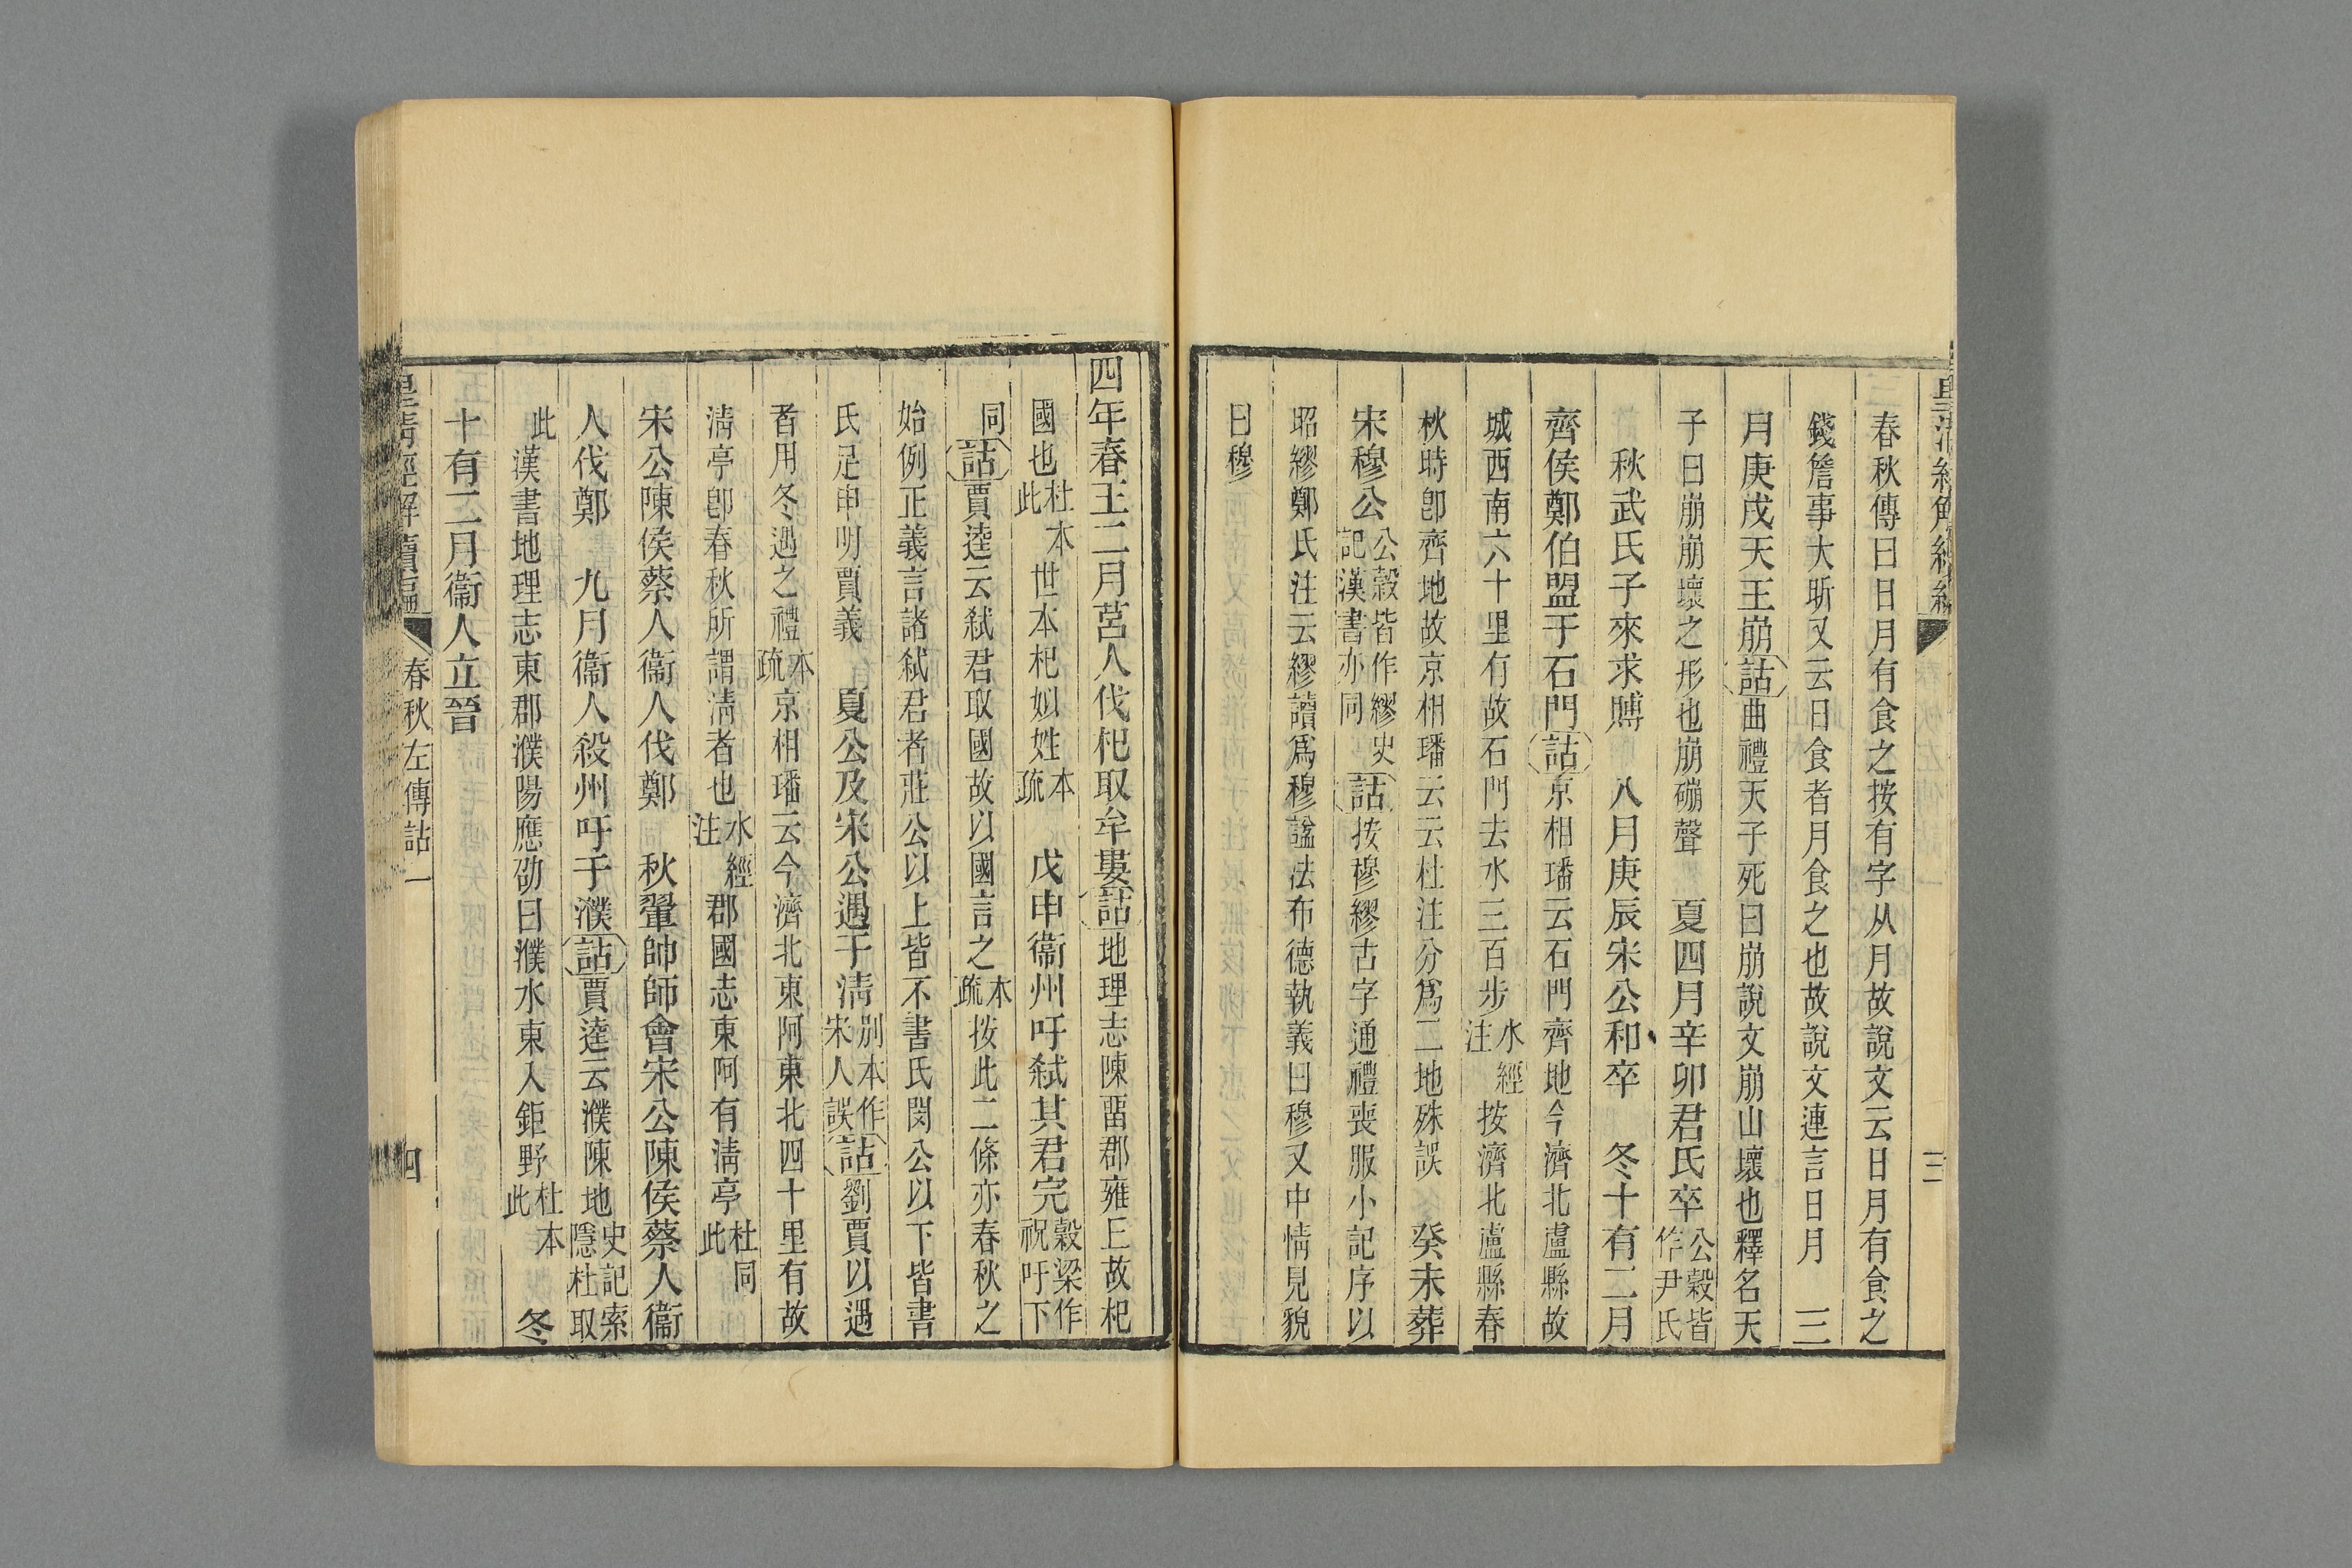 春秋傳曰日月有食之按有字从月故說文云日月有食之
錢詹事大昕又云日食者月食之也故說文連言日月　三
月庚戌天王崩詁曲禮天子死曰崩說文崩山壞也釋名天
子曰崩崩壞之形也崩硼聲　夏四月辛卯君氏卒公穀皆作尹氏
秋武氏子來求賻　八月庚辰宋公和卒　冬十有二月
齊侯鄭伯盟于石門詁京相璠云石門齊地今濟北盧縣故
城西南六十里有故石門去水三百步水經注按濟北盧縣春
秋時卽齊地故京相璠云云杜注分爲二地殊誤　癸未葬
宋穆公公穀皆作繆史記漢書亦同詁按穆繆古字通禮喪服小記序以
昭繆鄭氏注云繆讀爲穆諡法布德執義曰穆又中情見貌
曰穆
四年春王二月莒人伐杞取牟婁詁地理志陳畱郡雍丘故杞
國也杜本此世本杞姒姓本疏　戊申衞州吁弑其君完穀梁作祝吁下
同詁賈逵云弑君取國故以國言之本疏按此二條亦春秋之
始例正義言諸弑君者莊公以上皆不書氏閔公以下皆書
氏足申明賈義　夏公及宋公遇于淸別本作宋人誤詁劉賈以遇
者用冬遇之禮本疏京相璠云今濟北東阿東北四十里有故
淸亭卽春秋所謂淸者也水經注郡國志東阿有淸亭杜同此
宋公陳侯蔡人衞人伐鄭　秋翬帥師會宋公陳侯蔡人衞
人伐鄭　九月衞人殺州吁于濮詁賈逵云濮陳地史記索隱杜取
此漢書地理志東郡濮陽應劭曰濮水東入鉅野杜本此　冬
十有二月衞人立晉
皇淸經解續編　春秋左傳詁一　四